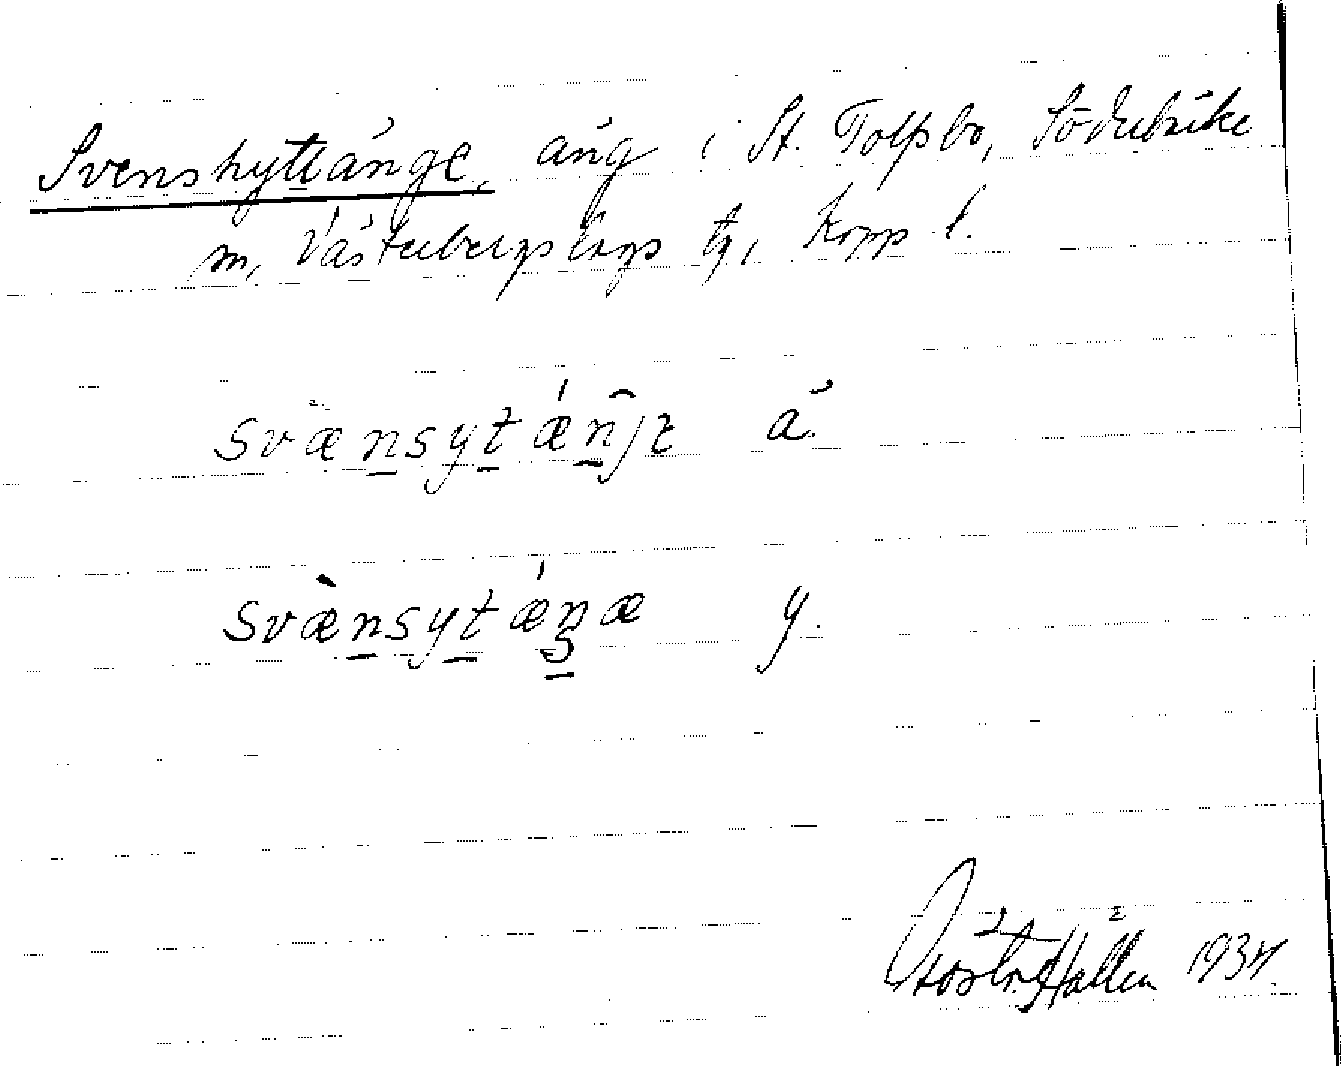 Svenshyttänge, äng i St. Tolpbo, Söderbärke
sn, Västerbergslags tg, Kopp l.
svæ̀nsytǽn̂jɩ ä.
svæ̀nsytǽŋæ y.
Hällen 1934